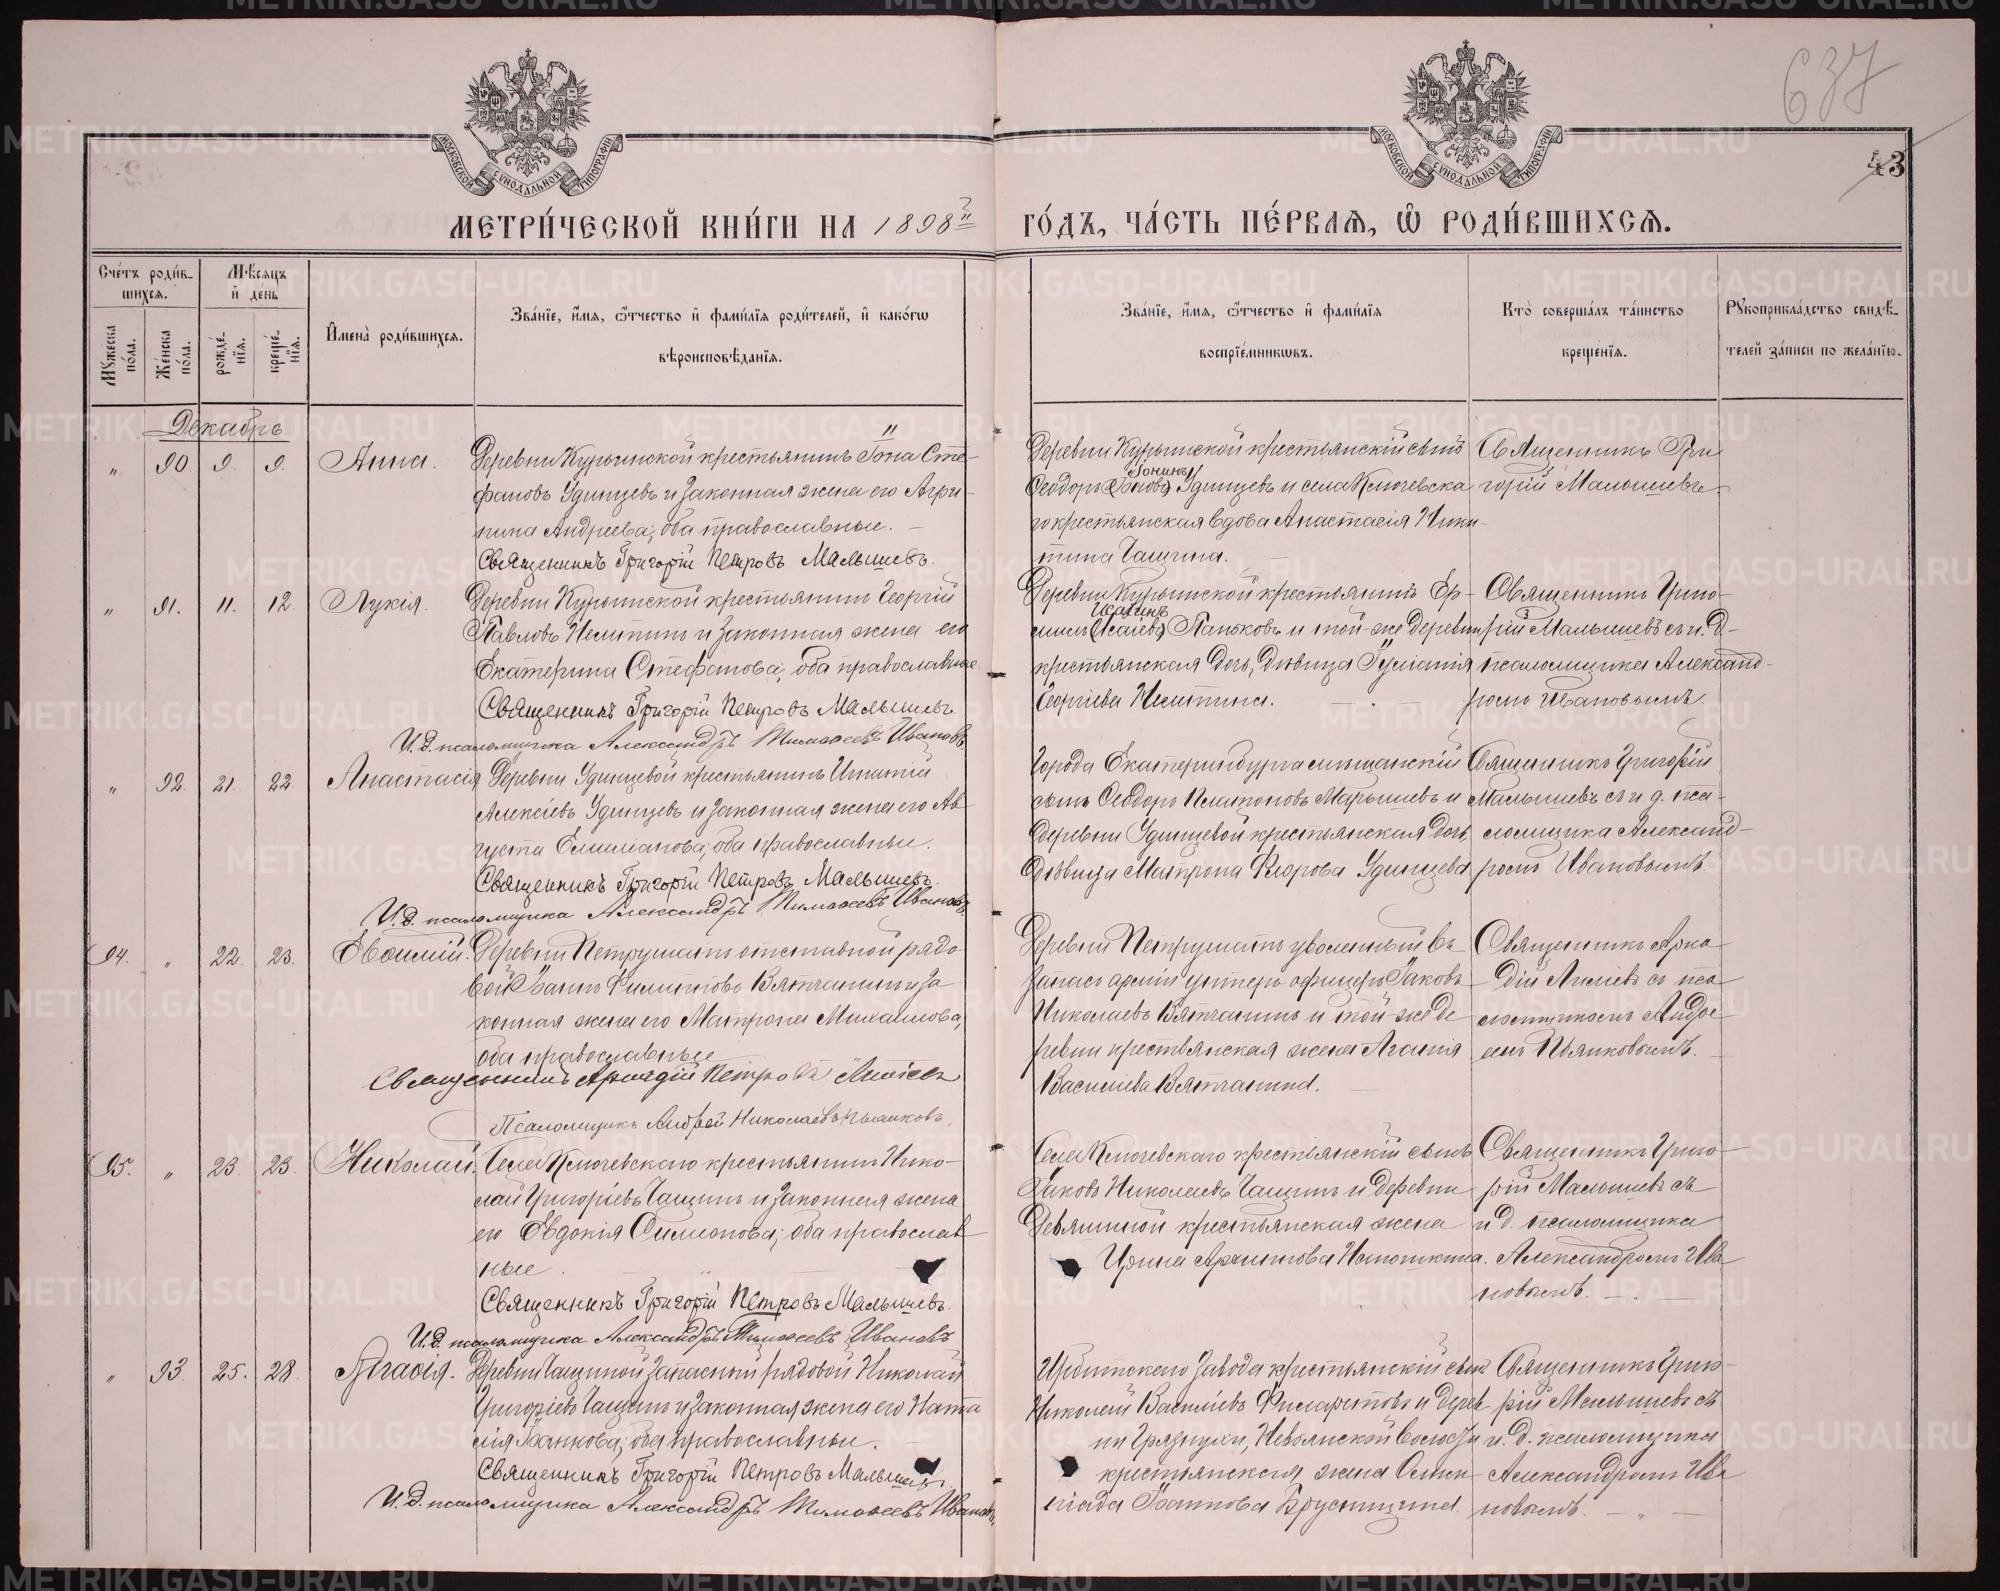 637
43
МОСКОВСКОЙ СѴНОДАЛЬНОЙ ТИПОГРАФІИ
МОСКОВСКОЙ СѴНОДАЛЬНОЙ ТИПОГРАФІИ
МЕТРИ́ЧЕСКОЙ КНИ́ГИ НА 1898й ГО́ДЪ, ЧА́СТЬ ПЕ́РВАѦ, Ѽ РОДИ́ВШИХСѦ.
Сче́тъ роди́в-
шихсѧ.
Мѣ́сѧцъ
и҆ де́нь
Мꙋ́жеска
по́ла.
Же́нска
по́ла.
рожде́-
нїѧ.
креще́-
нїѧ.
И҆мена̀ роди́вшихсѧ.
Зва́нїе, и҆́мѧ, ѻ҆́тчество и҆ фами́лїѧ роди́телей, и҆ како́гѡ
вѣроисповѣ́данїѧ.
Зва́нїе, и҆́мѧ, ѻ҆́тчество и҆ фами́лїѧ
воспрїе́мникѡвъ.
Кто̀ соверша́лъ та́инство
креще́нїѧ.
Рꙋкоприкла́дство свидѣ́-
телей за́писи по жела́нїю.
Декабрь
„ 90. 9. 9. Анна.
Деревни Курьинской крестьянинъ Іона Сте-
фановъ Удинцевъ и законная жена его Агри-
пина Андреева; оба православные. —
Священникъ Григорій Петровъ Малышевъ.
Деревни Курьинской крестьянскій сынъ
Іонинъ
Ѳеодоръ (Іоновъ) Удинцевъ и села Ключевска
го крестьянская вдова Анастасія Ники-
тина Чащина.
Священникъ Гри
горій Малышевъ.
„ 91. 11. 12. Лукія.
Деревни Курьинской крестьянинъ Георгій
Павловъ Неситинъ и законная жена его
Екатерина Стефанова; оба православные.
Священникъ Григорій Петровъ Малышевъ.
И.д. псаломщика Александръ Тимоѳеевъ Ивановъ
Деревни Курьинской крестьянинъ Еф-
Исаинъ
(Исаіевъ) Паньковъ и той-же деревни
крестьянская дочь, дѣвица Іуліанія
Георгіева
Священникъ Григо-
рій Малышевъ съ и. д-
псаломщика Александ-
ромъ Ивановымъ.
„ 92. 21. 22. Анастасія
Деревни Удинцевой крестьянинъ Игнатій
Алексіевъ Удинцевъ и законная жена его Ав-
густа Емиліанова; оба православные.
Священникъ Григорій Петровъ Малышевъ.
И.д. псаломщика Александръ Тимоѳеевъ Ивановъ
Города Екатеринбурга мѣщанскій
сынъ Ѳеодоръ Платоновъ и
деревни Удинцевой крестьянская дочь,
дѣвица Матрона Ѳедорова Удинцева
Священникъ Григорій
Малышевъ съ и. д. пса-
ломщика Александ-
ромъ Ивановымъ.
94. „ 22. 23. Евѳимій.
Деревни Петрушатъ отставной рядо-
вой Іоаннъ Филипповъ Вятчанинъ и за
конная жена его Матрона Михаилова,
оба православные
Священникъ Аркадій Петровъ
Псаломщикъ Андрей Николаевъ Пьянковъ.
Деревни Петрушатъ уволенный въ
запасъ арміи унтеръ-офицеръ Іаковъ
Николаевъ Вятчанинъ и той-же де
ревни крестьянская жена Агапія
Василіева Вятчанина.
Священникъ Арка
дій съ пса
ломщикомъ Андре
емъ Пьянковымъ.
95. „ 23. 23. Николай.
Села Ключевского крестьянинъ Нико-
лай Григоріевъ Чащинъ и законная жена
его Евдокія Симеонова; оба православ
ные.
Священникъ Григорій Петровъ Малышевъ.
И.д. псаломщика Александръ Тимоѳеевъ Ивановъ
Села Ключевского крестьянскій сынъ
Іаковъ Николаевъ Чащинъ и деревни
Девяшиной крестьянская жена
Ирина Архиппова
Священникъ Григо-
рій Малышевъ съ
и д. псаломщика
Александромъ Ива
новымъ.
„ 93. 25. 28. Агаѳія.
Деревни Чащиной запасный рядовой Николай
Григоріевъ Чащинъ и законная жена его Ната
лія Іоаннова; оба православные.
Священникъ Григорій Петровъ Малышевъ.
И.д. псаломщика Александръ Тимоѳеевъ Ивановъ
Ирбитскаго завода крестьянскій сынъ
Николай Василіевъ Филаретовъ и дерев
ни Грязнухи, Невьянской волости
крестьянская жена Олим-
піада Іоаннова Брусницина.
Священникъ Григо-
рій Малышевъ съ
и. д. псаломщика
Александромъ Ива
новымъ.
METRIKI.GASO-URAL.RU